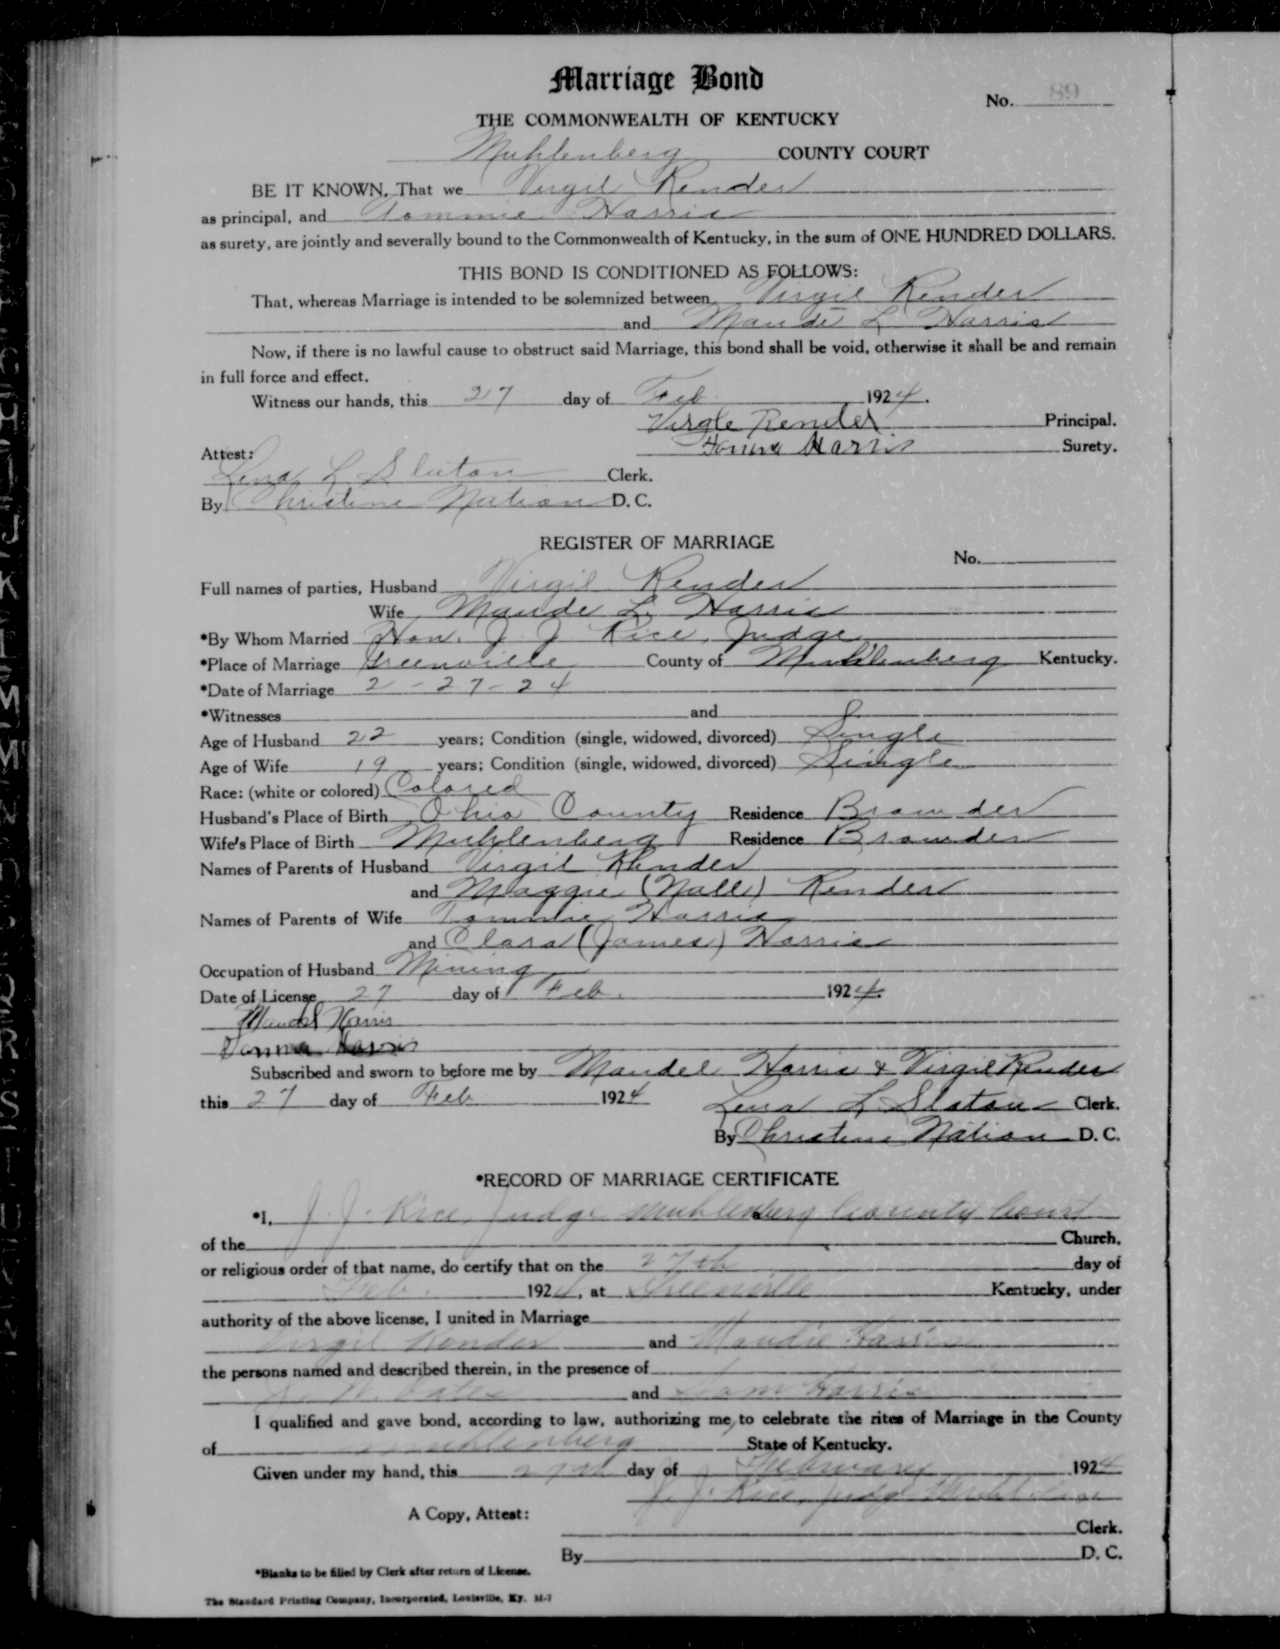 Marriage Bond
No. 89
THE COMMONWEALTH OF KENTUCKY
Muhlenberg COUNTY COURT
BE IT KNOWN, That we Virgil Render
as principal, and Tommie Harris
as surety, are jointly and severally bound to the Commonwealth of Kentucky, in the sum of ONE HUNDRED DOLLARS.
THIS BOND IS CONDITIONED AS FOLLOWS:
That, whereas Marriage is intended to be solemnized between Virgil Render
and Maude L Harris
Now, if there is no lawful cause to obstruct said Marriage, this bond shall be void, otherwise it shall be and remain
in full force and effect.
Witness our hands, this 27 day of Feb 1924.
Virgle Render Principal.
Harris Surety.
Attest:
Lena L Slaton Clerk.
By Christine Nation D. C.
REGISTER OF MARRIAGE
No.
Full names of parties, Husband Virgil Render
Wife Maude L. Harris
*By Whom Married Hon. J. J. Rice, Judge
*Place of Marriage Greenville County of Muhlenberg Kentucky.
*Date of Marriage 2-27-24
*Witnesses and
Age of Husband 22 years; Condition (single, widowed, divorced) Single
Age of Wife 19 years; Condition (single, widowed, divorced) Single
Race: (white or colored) Colored
Husband's Place of Birth Ohio County Residence Browder
Wife's Place of Birth Muhlenberg Residence Browder
Names of Parents of Husband Virgil Render
and Maggie (Nall) Render
Names of Parents of Wife Tommie Harris
and Clara (James) Harris
Occupation of Husband Mining
Date of License 27 day of Feb. 1924.
Maudel Harris
Harris
Subscribed and sworn to before me by Maudel Harris & Virgil Render
this 27 day of Feb 1924
Lena L Slaton Clerk.
By Christine Nation D. C.
*RECORD OF MARRIAGE CERTIFICATE
*I, J. J. Rice, Judge Muhlenberg County Court
of the Church,
or religious order of that name, do certify that on the 27th day of
Feb. 1924, at Greenville Kentucky, under
authority of the above license, I united in Marriage
Virgil Render and Maudie Harris
the persons named and described therein, in the presence of
and Tom Harris
I qualified and gave bond, according to law, authorizing me, to celebrate the rites of Marriage in the County
of Muhlenberg State of Kentucky.
Given under my hand, this 27th day of February 1924
J. J. Rice, Judge
A Copy, Attest:
Clerk.
By D. C.
*Blanks to be filled by Clerk after return of License.
The Standard Printing Company, Incorporated, Louisville, Ky. M-7